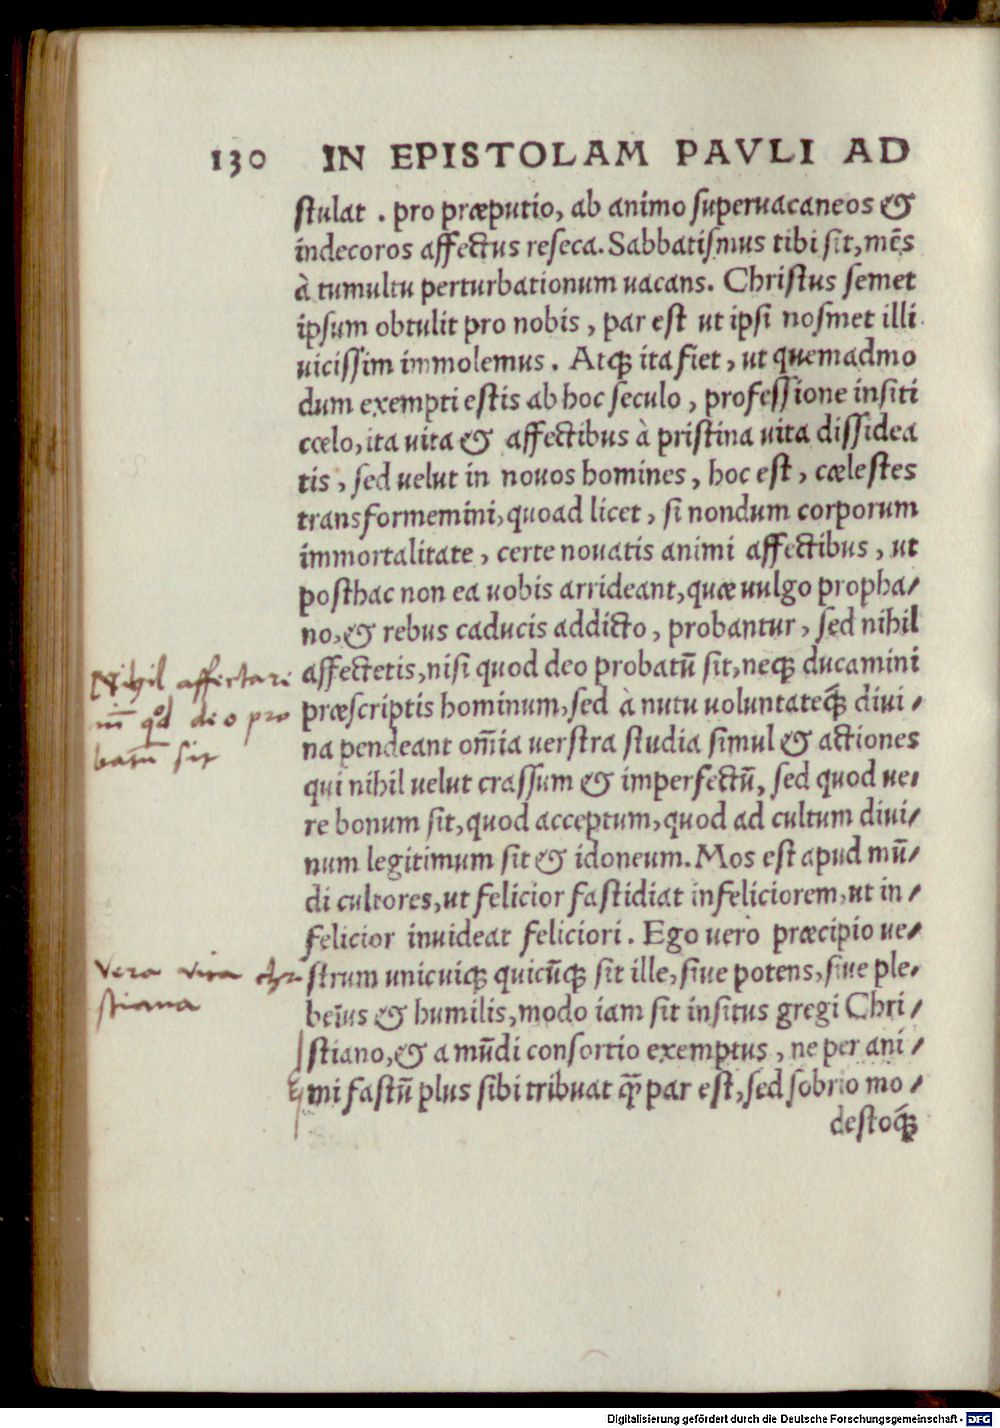 130 IN EPISTOLAM PAVLI AD
stulat . pro præputio, ab animo superuacaneos &
indecoros affectus reseca. Sabbatismus tibi sit, mẽs
à tumultu perturbationum uacans. Christus semet
ipsum obtulit pro nobis , par est ut ipsi nosmet illi
uicissim immolemus . Atqꝫ ita fiet , ut quemadmo
dum exempti estis ab hoc seculo , professione insiti
cœlo, ita uita & affectibus à pristina uita dissidea
tis , sed uelut in nouos homines , hoc est , cælestes
transformemini, quoad licet , si nondum corporum
immortalitate , certe nouatis animi affectibus , ut
posthac non ea uobis arrideant, quæ uulgo propha/
no, & rebus caducis addicto , probantur , sed nihil
affectetis, nisi quod deo probatũ sit, neqꝫ ducamini
præscriptis hominum, sed à nutu uoluntateq́ꝫ diui/
na pendeant om̃ia uerstra studia simul & actiones
qui nihil uelut crassum & imperfectũ, sed quod ue/
re bonum sit, quod acceptum, quod ad cultum diui/
num legitimum sit & idoneum. Mos est apud mũ/
di cultores, ut felicior fastidiat infeliciorem, ut in/
felicior inuideat feliciori . Ego uero præcipio ue/
strum unicuiqꝫ quicũqꝫ sit ille, siue potens, siue ple/
beĩus & humilis, modo iam sit insitus gregi Chri/
stiano, & a mũdi consortio exemptus , ne per ani/
mi fastũ plus sibi tribuat q̃ par est, sed sobrio mo/
destoq́ꝫ
Nihil affectari
qd deo pro
batũ sit
Vera vita chri
stiana
Digitalisierung gefördert durch die Deutsche Forschungsgemeinschaft - DFG